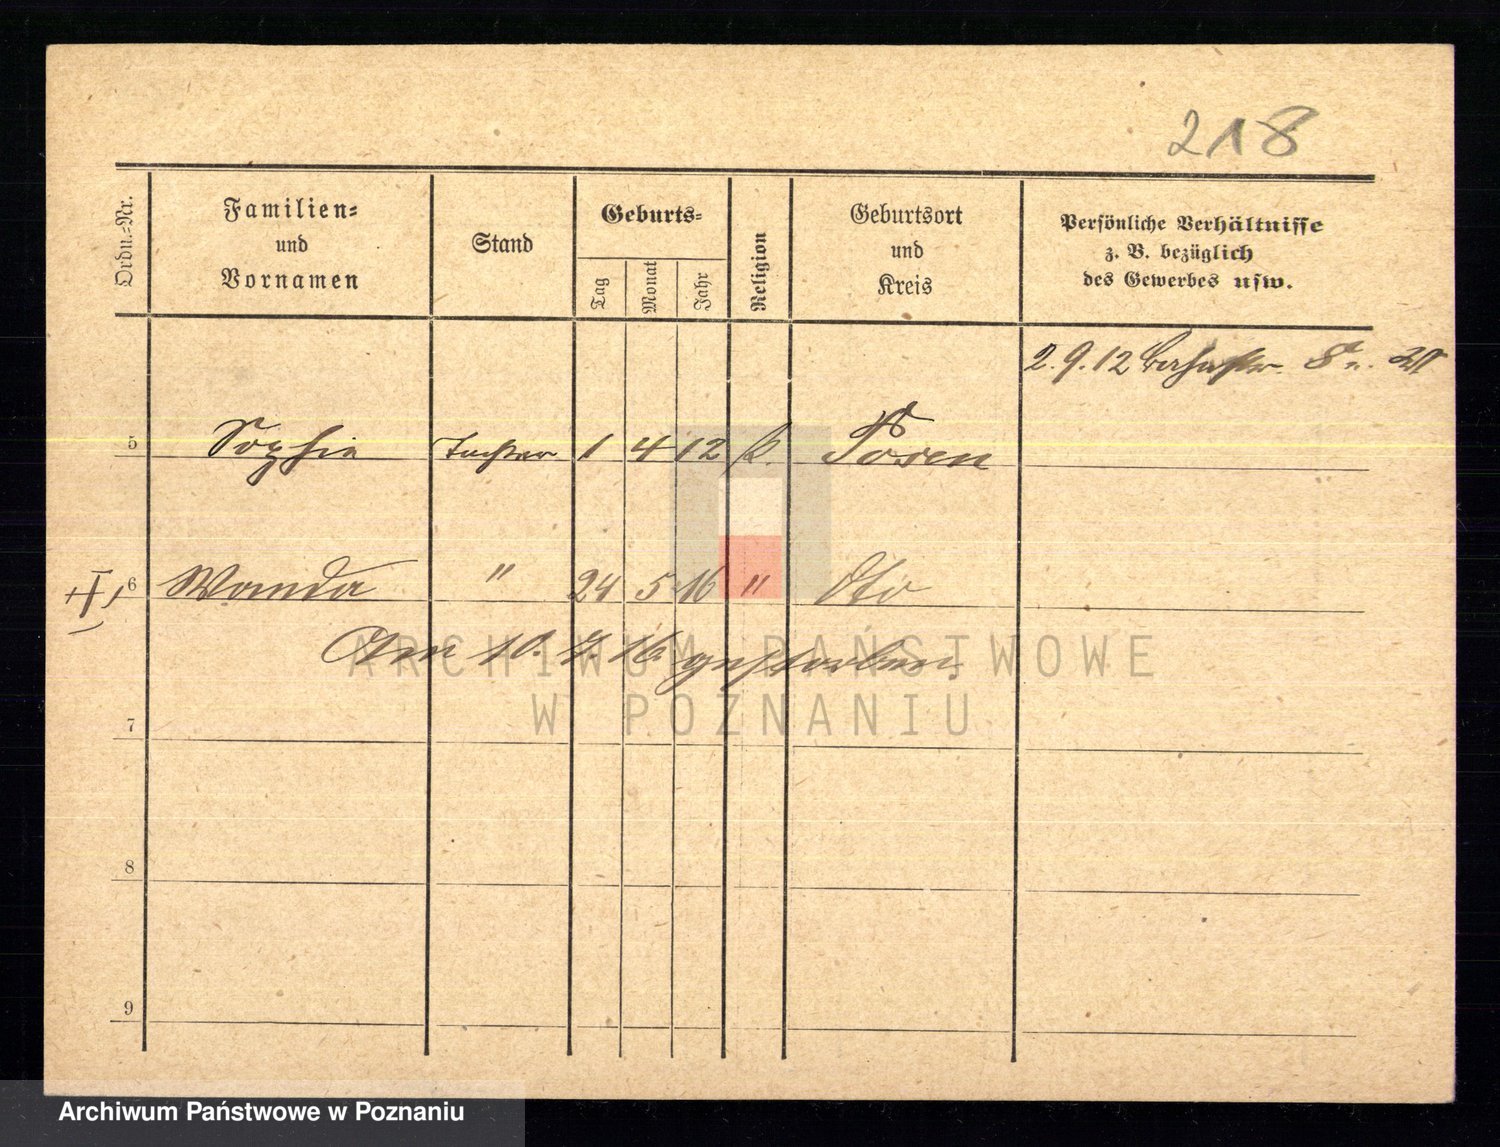 218
Ordn.-Nr.
Familien-
und
Vornamen
Stand
Geburts-
Tag
Monat
Jahr
Religion
Geburtsort
und
Kreis
Persönliche Verhältnisse
z. B. bezüglich
des Gewerbes usw.
2.9.12
5 Sophie Tochter 1 4 12 k. Posen
6 Wanda " 24 5 16 " dto
Am 10. 7. 16 gestorben.
7
8
9
ARCHIWUM PAŃSTWOWE
W POZNANIU
Archiwum Państwowe w Poznaniu